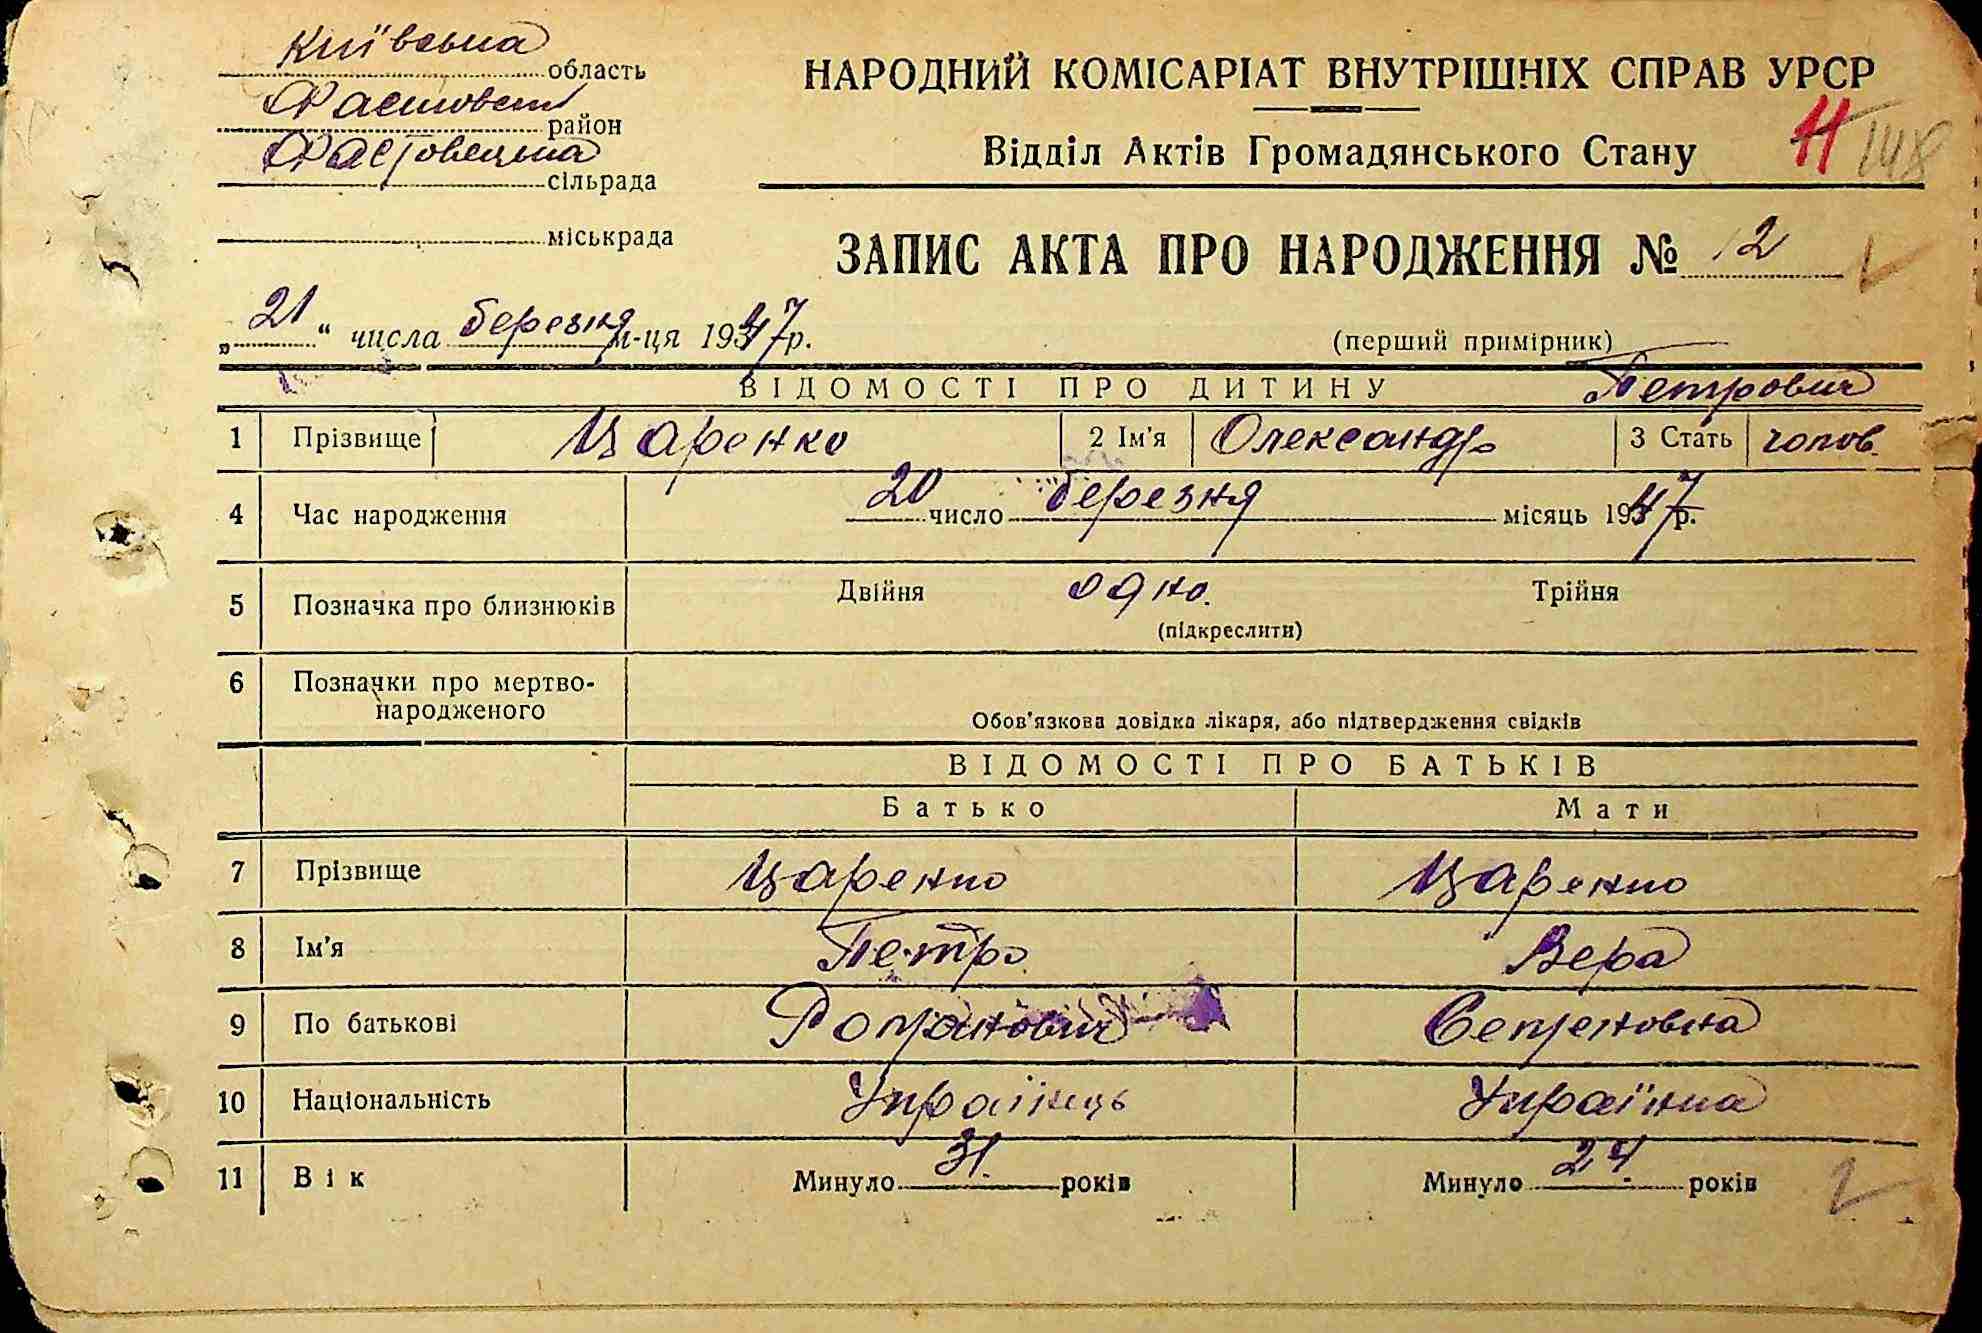 Київська область
Фастовськ район
Фастовецька сільрада
міськрада
НАРОДНИЙ КОМІСАРІАТ ВНУТРІШНІХ СПРАВ УРСР
Відділ Актів Громадянського Стану
11 148
ЗАПИС АКТА ПРО НАРОДЖЕННЯ № 12
„21“ числа березня м-ця 1947 р.
(перший примірник)
ВІДОМОСТІ ПРО ДИТИНУ Петрович
1 Прізвище Царенко 2 Ім'я Олександр 3 Стать чолов.
4 Час народження 20 число березня місяць 1947 р.
5 Позначка про близнюків Двійня одно. Трійня
(підкреслити)
6 Позначки про мертво-
народженого
Обов'язкова довідка лікаря, або підтвердження свідків
ВІДОМОСТІ ПРО БАТЬКІВ
Батько Мати
7 Прізвище Царенко Царенко
8 Ім'я Петро Вера
9 По батькові Романович Семеновна
10 Національність Українець Українка
11 Вік Минуло 31 років Минуло 24 років